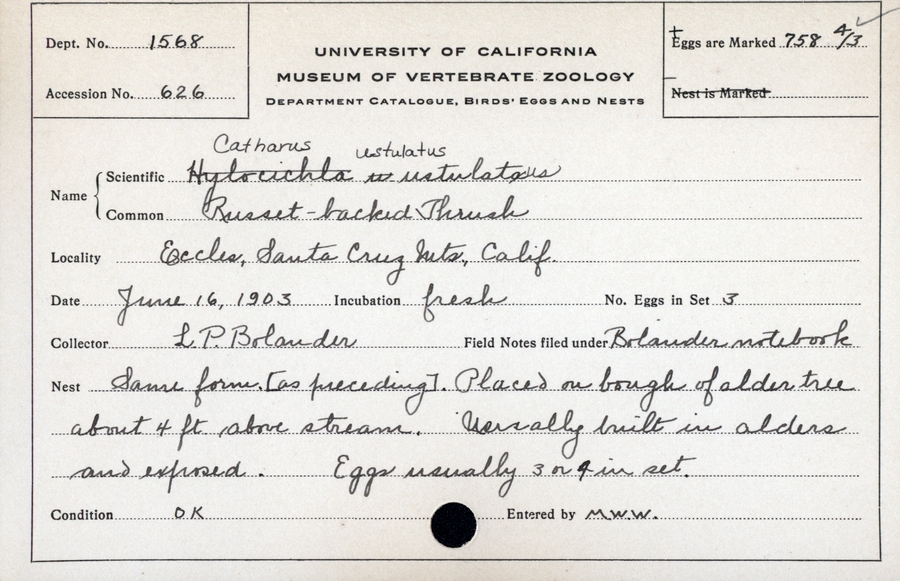 Dept. No. 1568
Accession No. 626
UNIVERSITY OF CALIFORNIA
MUSEUM OF VERTEBRATE ZOOLOGY
DEPARTMENT CATALOGUE, BIRDS' EGGS AND NESTS
Eggs are Marked 758 4/3
Nest is Marked
Catharus ustulatus
Name Scientific Hylocichla u ustulatus
Common Russet-backed Thrush
Locality Eccles, Santa Cruz Mts, Calif.
Date June 16, 1903 Incubation fresh No. Eggs in Set 3
Collector L. P. Bolander Field Notes filed under Bolander notebook
Nest Same form. [as preceding]. Placed on bough of alder tree
about 4 ft above stream. Ususally built in alders
and exposed. Eggs usually 3 or 4 in set.
Condition OK Entered by M.W.W.